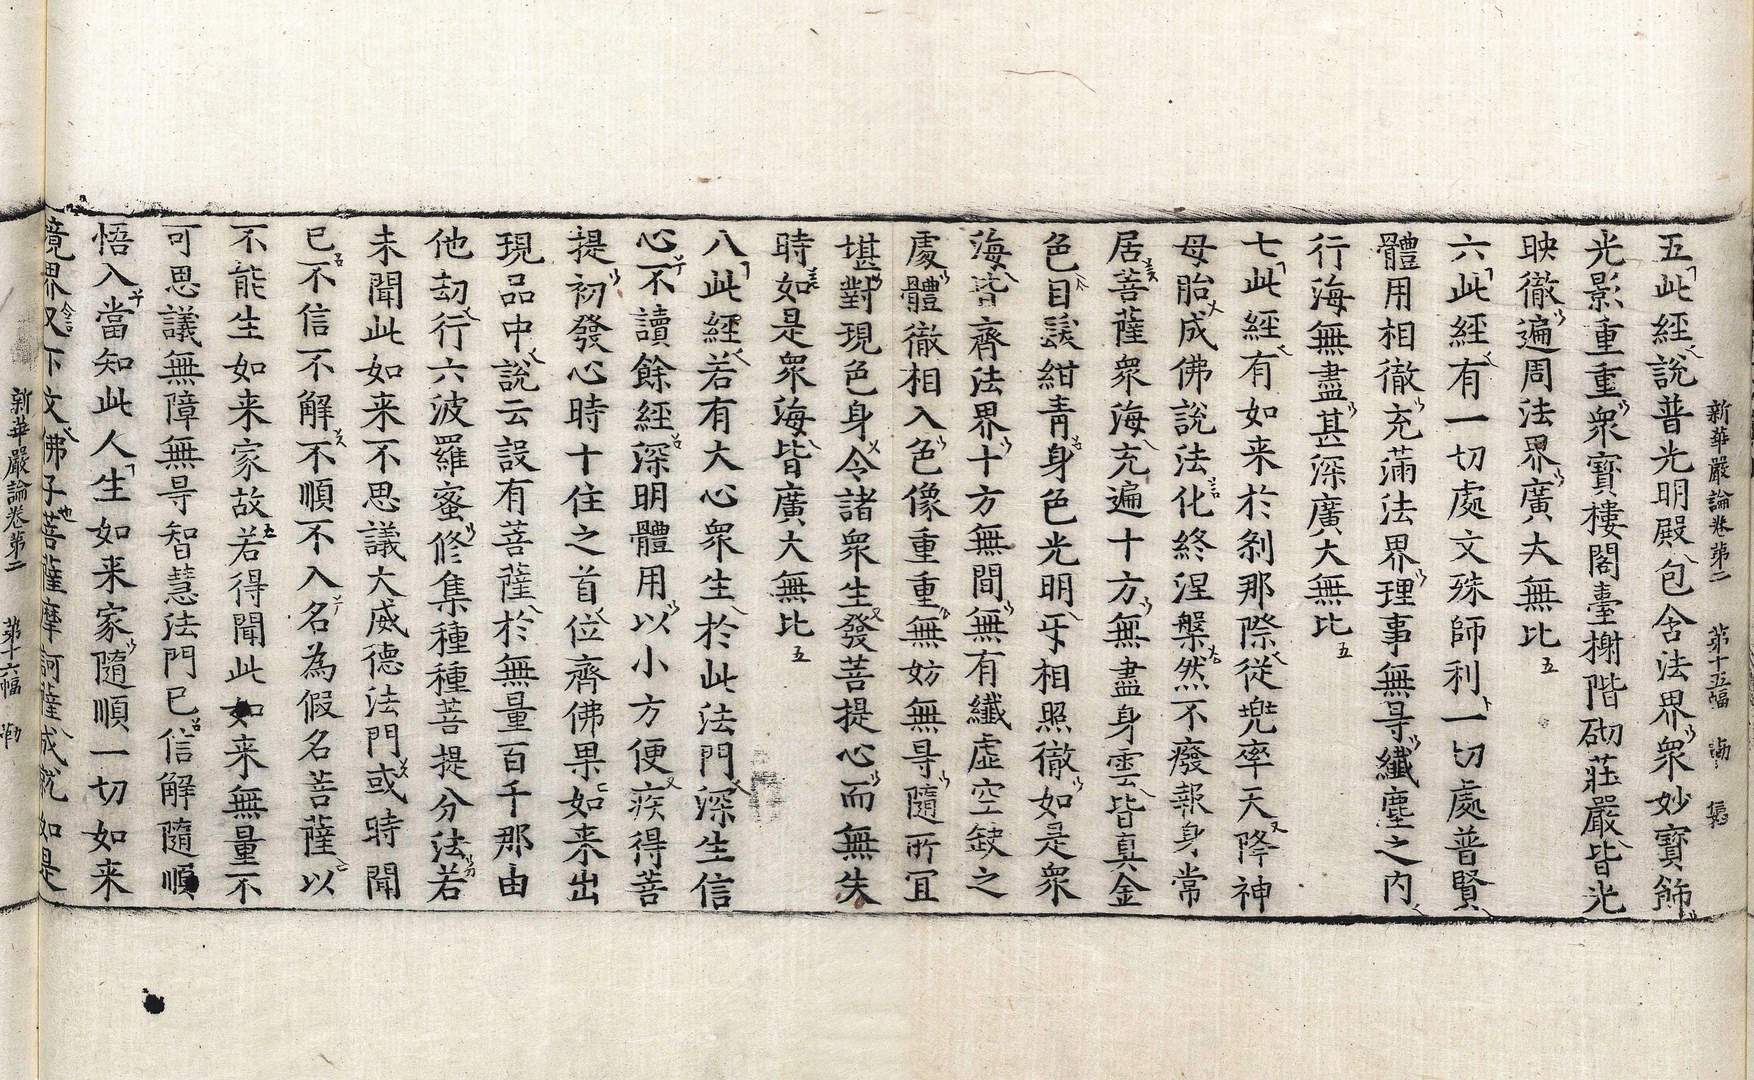 新華嚴論卷第二 第十五幅
五此經說普光明殿包含法界衆妙寶飾
光影重重衆寶樓閣臺榭階砌莊嚴皆光
映徹遍周法界廣大無比五
六此經有一切處文殊師利一切處普賢
體用相徹充滿法界理事無㝵纖塵之內
行海無盡甚深廣大無比五
七此經有如來於刹那際從兜率天降神
母胎成佛說法化終涅槃然不癈報身常
居菩薩衆海充遍十方無盡身雲皆真金
色目髮紺青身色光明牙相照徹如是衆
海皆齊法界十方無間無有纖虛空缺之
處體徹相入色像重重無妨無㝵隨所冝
堪對現色身令諸衆生發菩提心而無失
時如是衆海皆廣大無比五
八此經若有大心衆生於此法門深生信
心不讀餘經深明體用以小方便疾得菩
提初發心時十住之首位齊佛果如来出
現品中說云設有菩薩於無量百千那由
他劫行六波羅蜜修集種種菩提分法若
未聞此如来不思議大威德法門或時聞
已不信不解不順不入名為假名菩薩以
不能生如来家故若得聞此如来無量不
可思議無障無㝵智慧法門已信解隨順
悟入當知此人生如来家隨順一切如来
境界又下文佛子菩薩摩訶薩成就如是
新華嚴論卷第二 第十六幅